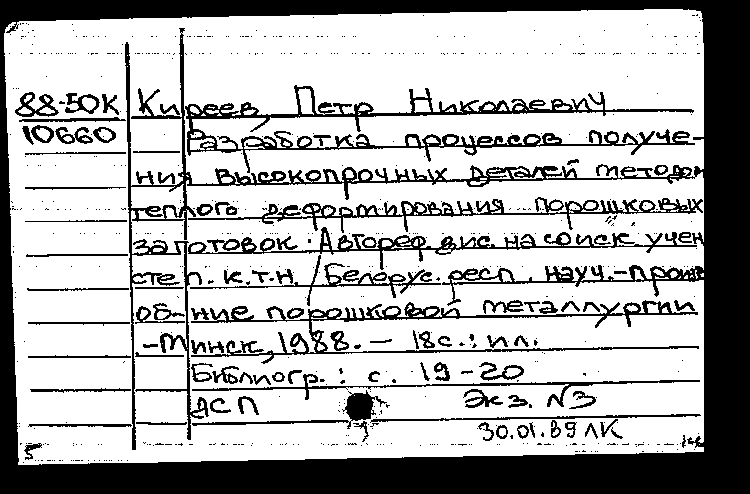 88-50К Киреев, Петр Николаевич
10660 Разработка процессов получе-
ния высокопрочных деталей методом
теплого деформирования порошковых
заготовок: Автореф. дис. на соиск. учен.
степ. к.т.н. / Белорус. респ. науч.-произв.
об-ние порошковой металлургии
-Минск, 1988. - 18с.: ил.
Библиогр.: с. 19-20
ДСП Экз. №3
30.01.89 ЛК
5